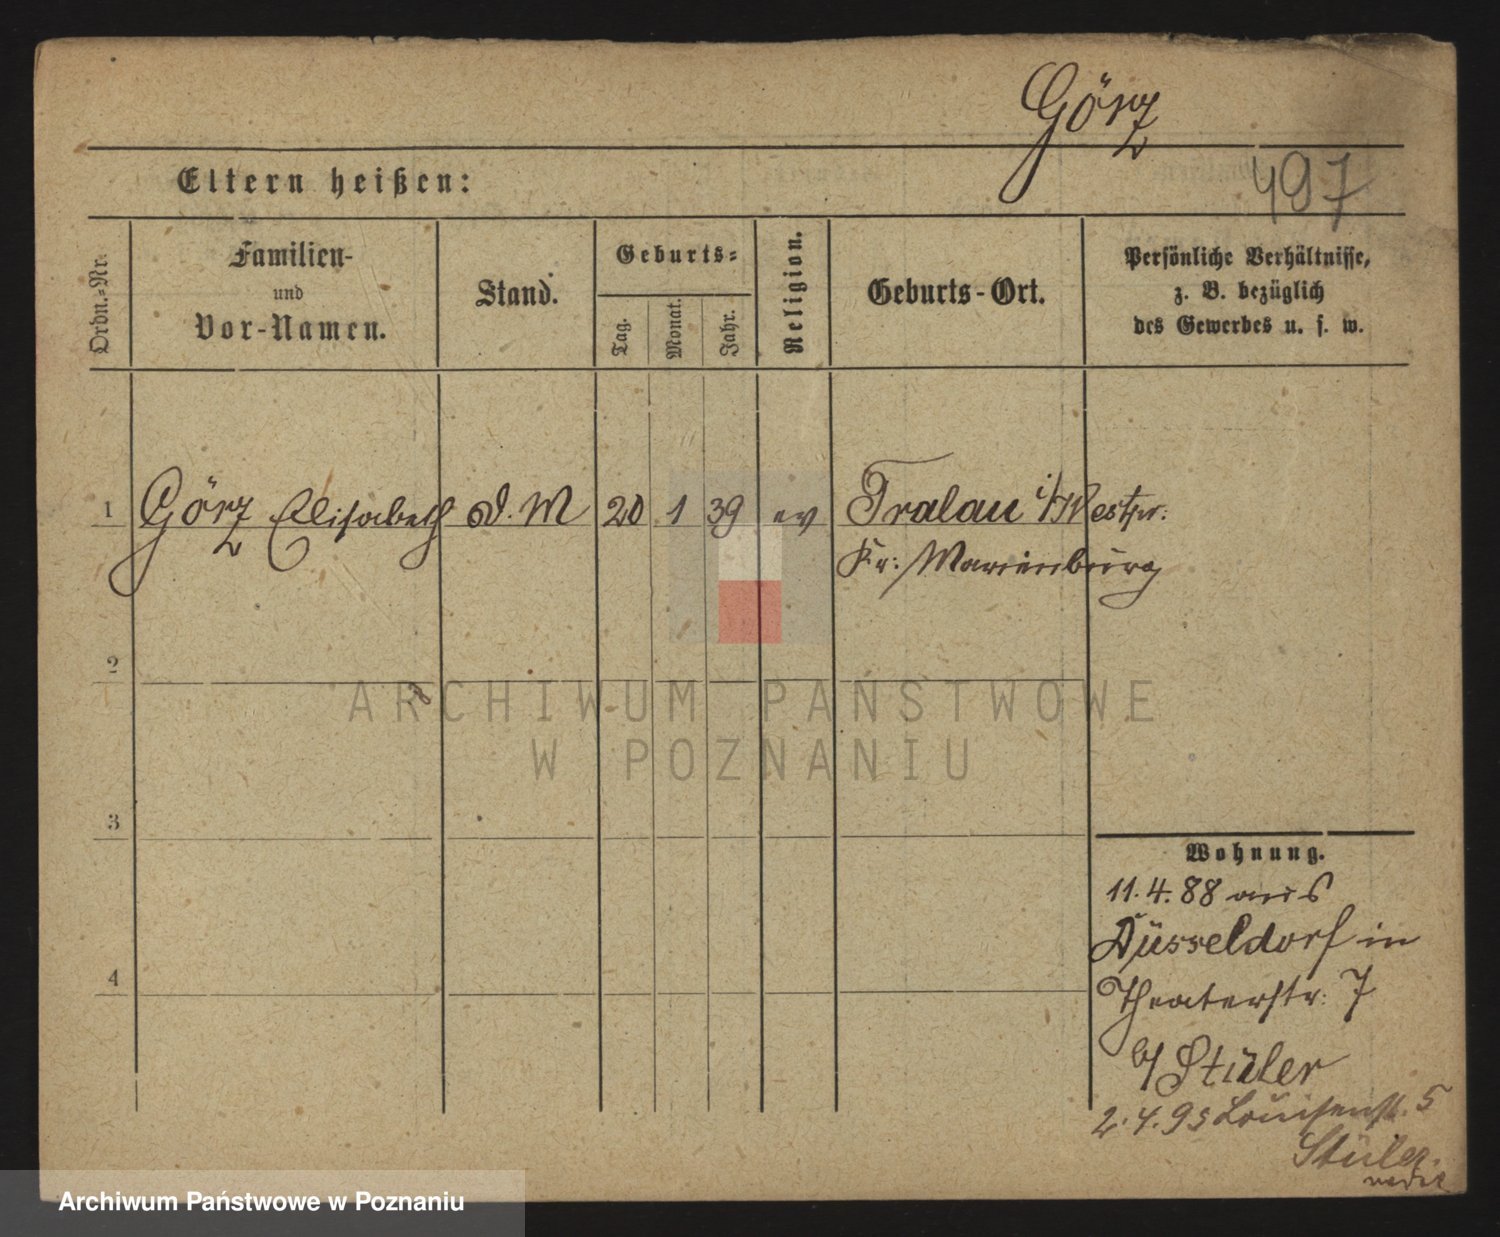 Görz
497
Eltern heißen:
Ordn.-Nr.
Familien-
und
Vor-Namen.
Stand.
Geburts-
Tag.
Monat.
Jahr.
Religion.
Geburts-Ort.
Persönliche Verhältnisse,
z. B. bezüglich
des Gewerbes u. s. w.
1 Görz Elisabeth d. M 20 1 39 ev Tralau i/Westpr.
Kr: Marienburg
2
3
4
Wohnung.
11.4.88 aus
Düsseldorf in
Theaterstr: 7
b/ Stüler
2.4.95 Louisenst. 5
Stüler.
ARCHIWUM PAŃSTWOWE
W POZNANIU
Archiwum Państwowe w Poznaniu